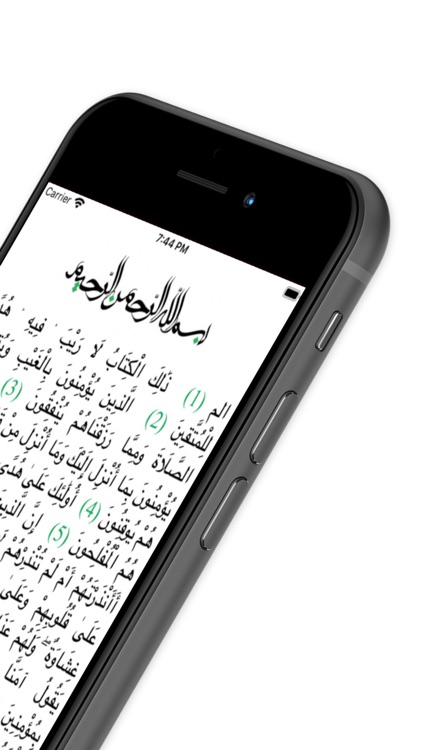 Carrier
7:44 PM
بسم الله الرحمن الرحيم
الم (1) ذَلِكَ الْكِتَابُ لَا رَيْبَ فِيهِ هُدًى
لِلْمُتَّقِينَ (2) الَّذِينَ يُؤْمِنُونَ بِالْغَيْبِ
الصَّلَاةَ وَمِمَّا رَزَقْنَاهُمْ يُنْفِقُونَ (3)
يُؤْمِنُونَ بِمَا أُنْزِلَ إِلَيْكَ وَمَا أُنْزِلَ مِنْ
هُمْ يُوقِنُونَ (4) أُولَئِكَ عَلَى هُدًى
هُمُ الْمُفْلِحُونَ (5) إِنَّ الَّذِينَ
أَأَنْذَرْتَهُمْ أَمْ لَمْ تُنْذِرْهُمْ
عَلَى قُلُوبِهِمْ وَعَلَى
غِشَاوَةٌ وَلَهُمْ
يَقُولُ آمَنَّا
بِمُؤْمِنِينَ